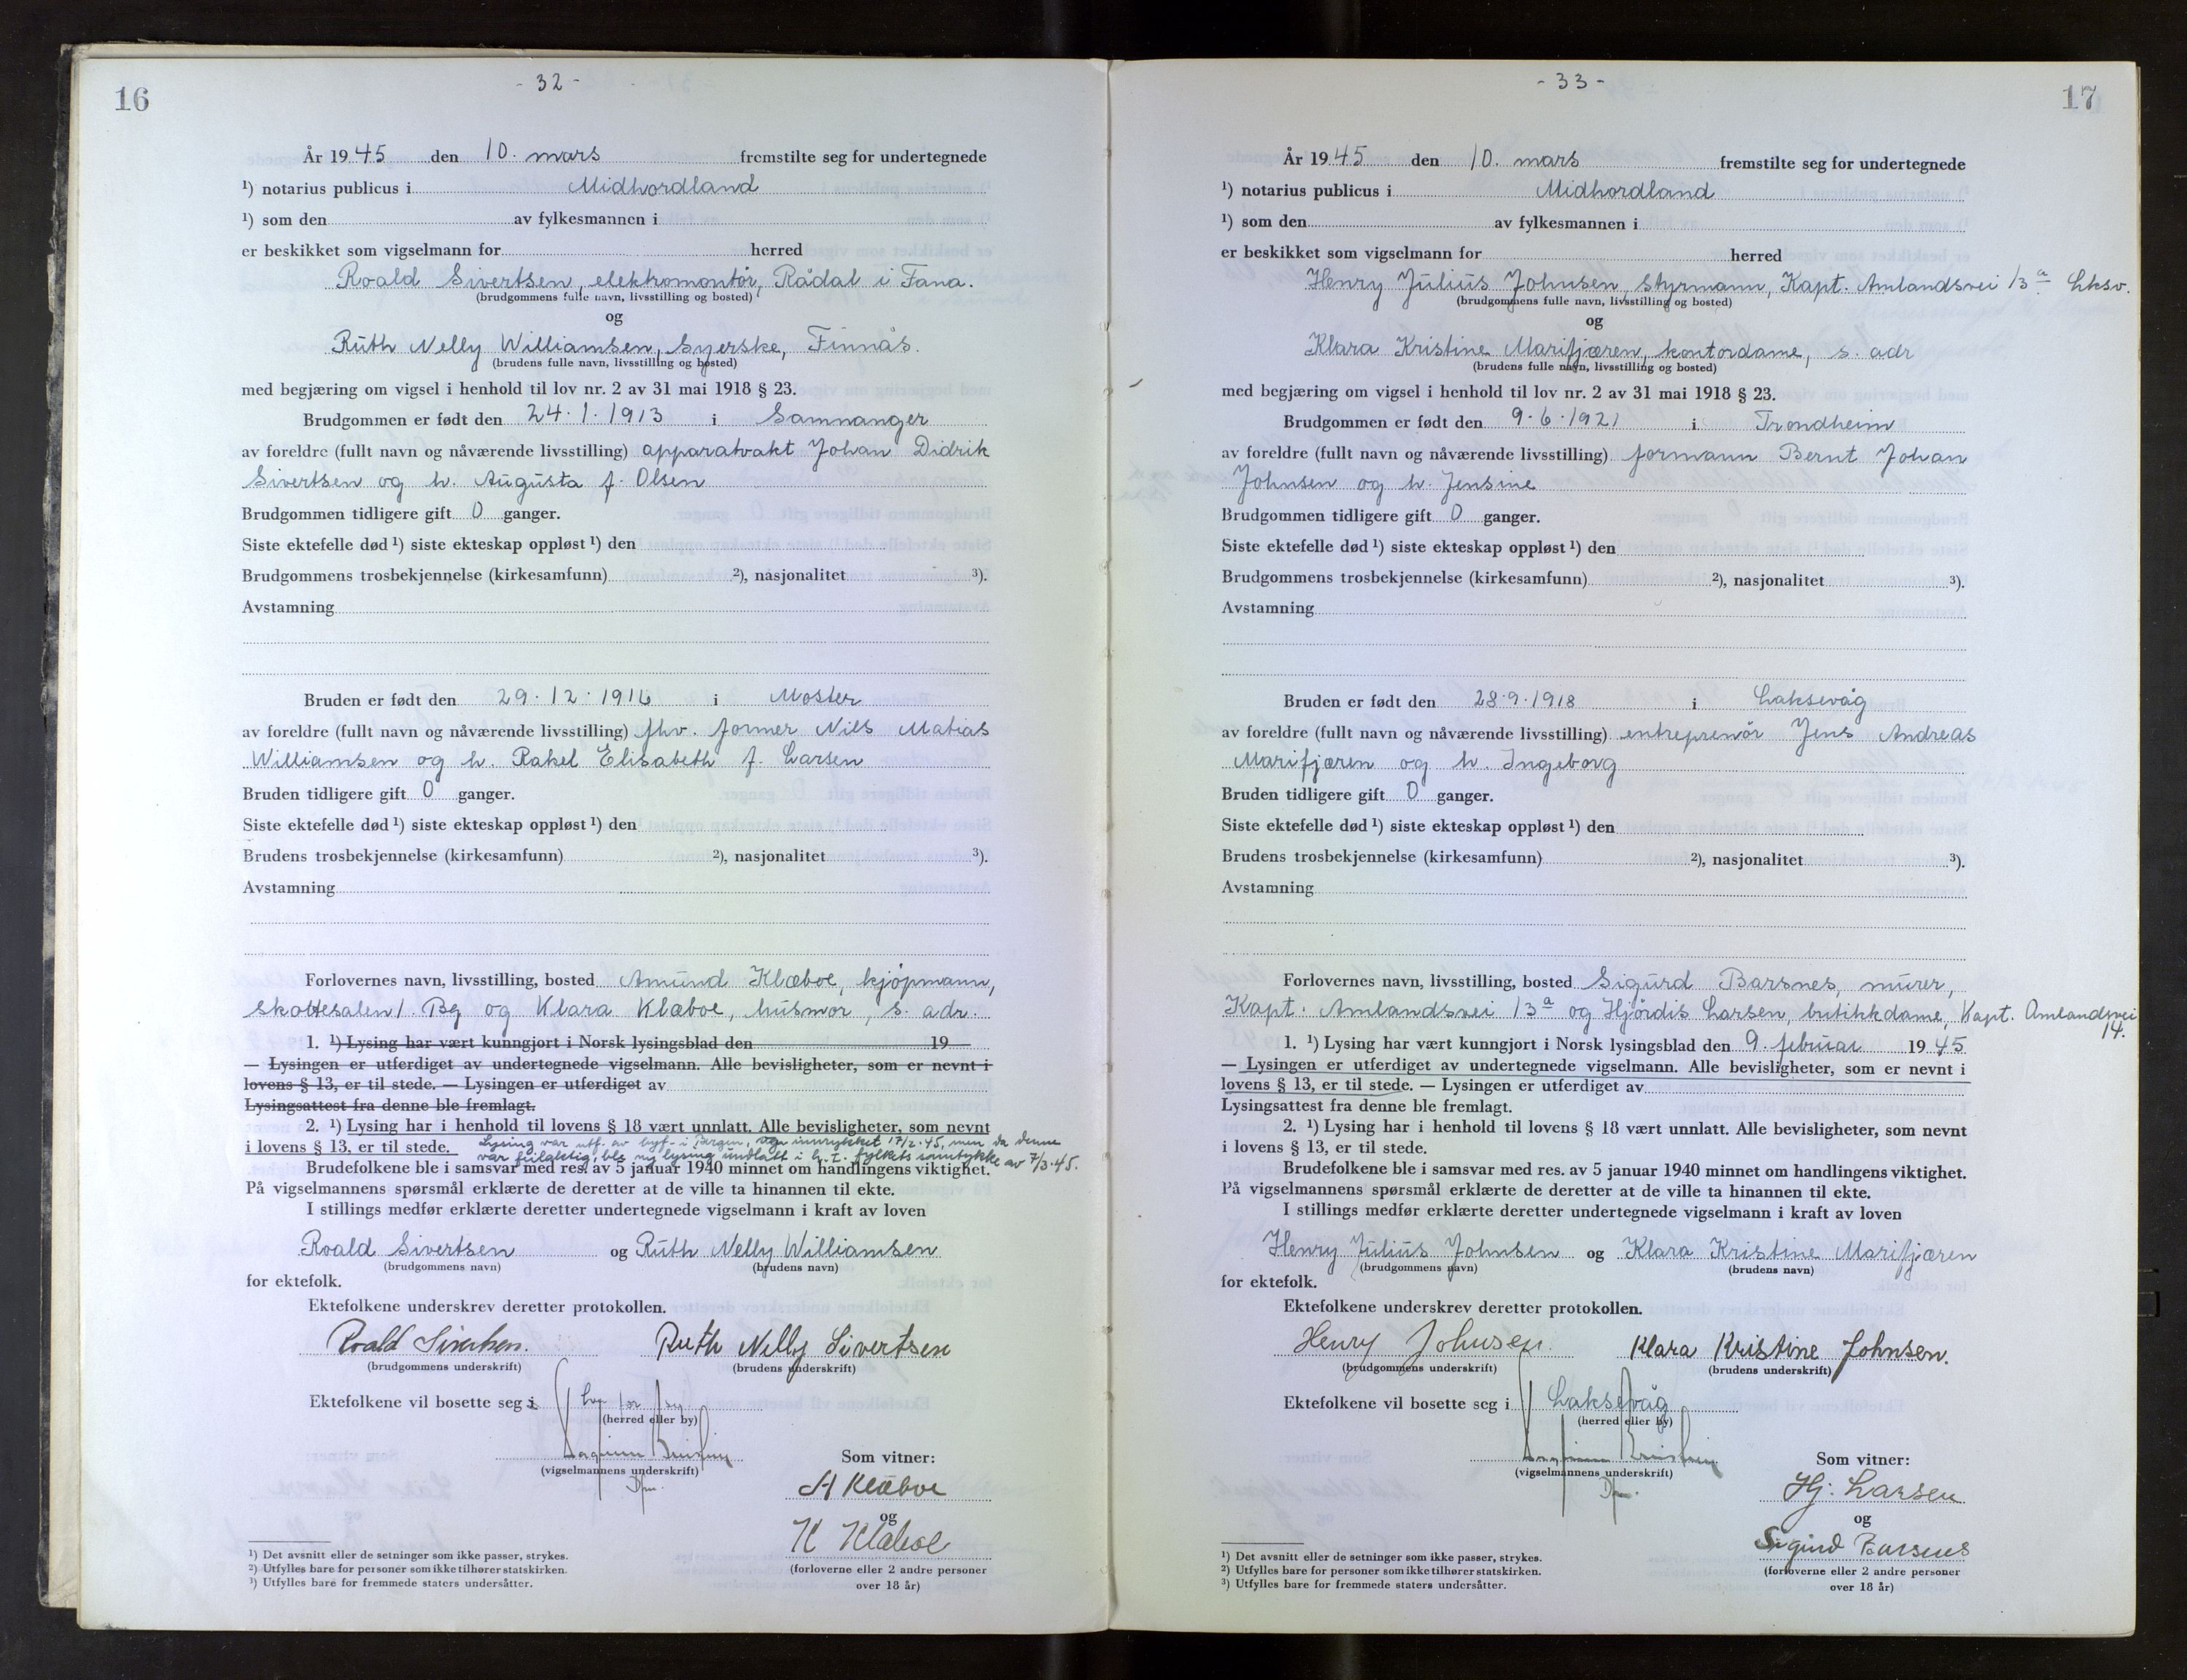 16
- 32 -
År 1945 den 10. mars fremstilte seg for undertegnede
¹) notarius publicus i Midhordland
¹) som den av fylkesmannen i
er beskikket som vigselmann for herred
Roald Sivertsen, elektromontør, Rådal i Fana.
(brudgommens fulle navn, livsstilling og bosted)
og
Ruth Nelly Williamsen, syerske, Finnås.
(brudens fulle navn, livsstilling og bosted)
med begjæring om vigsel i henhold til lov nr. 2 av 31 mai 1918 § 23.
Brudgommen er født den 24.1.1913 i Samnanger
av foreldre (fullt navn og nåværende livsstilling) apparatvakt Johan Didrik
Sivertsen og h. Augusta f. Olsen
Brudgommen tidligere gift 0 ganger.
Siste ektefelle død ¹) siste ekteskap oppløst ¹) den
Brudgommens trosbekjennelse (kirkesamfunn) ²), nasjonalitet ³).
Avstamning
Bruden er født den 29.12.1916 i Moster
av foreldre (fullt navn og nåværende livsstilling) fhv. former Nils Matias
Williamsen og h. Rakel Elisabeth f. Larsen
Bruden tidligere gift 0 ganger.
Siste ektefelle død ¹) siste ekteskap oppløst ¹) den
Brudens trosbekjennelse (kirkesamfunn) ²), nasjonalitet ³).
Avstamning
Forlovernes navn, livsstilling, bosted Amund Klæboe, kjøpmann,
Skottesalen 1. Bg og Klara Klæboe, husmor, s. adr.
1. ¹) Lysing har vært kunngjort i Norsk lysingsblad den 19
— Lysingen er utferdiget av undertegnede vigselmann. Alle bevisligheter, som er nevnt i
lovens § 13, er til stede. — Lysingen er utferdiget av
Lysingsattest fra denne ble fremlagt.
2. ¹) Lysing har i henhold til lovens § 18 vært unnlatt. Alle bevisligheter, som nevnt
i lovens § 13, er til stede. Lysing var utf. av byf. i Bergen, innrykket 17/2.45, men da denne
var feilaktig, ble ny lysing undlatt i h.t. fylkets samtykke av 7/3.45.
Brudefolkene ble i samsvar med res. av 5 januar 1940 minnet om handlingens viktighet.
På vigselmannens spørsmål erklærte de deretter at de ville ta hinannen til ekte.
I stillings medfør erklærte deretter undertegnede vigselmann i kraft av loven
Roald Sivertsen og Ruth Nelly Williamsen
(brudgommens navn) (brudens navn)
for ektefolk.
Ektefolkene underskrev deretter protokollen.
Roald Sivertsen. Ruth Nelly Sivertsen
(brudgommens underskrift) (brudens underskrift)
Ektefolkene vil bosette seg i
(herred eller by)
(vigselmannens underskrift)
Som vitner:
A Klæboe
og
K Klæboe
(forloverne eller 2 andre personer
over 18 år)
¹) Det avsnitt eller de setninger som ikke passer, strykes.
²) Utfylles bare for personer som ikke tilhører statskirken.
³) Utfylles bare for fremmede staters undersåtter.
17
- 33 -
År 1945 den 10. mars fremstilte seg for undertegnede
¹) notarius publicus i Midhordland
¹) som den av fylkesmannen i
er beskikket som vigselmann for herred
Henry Julius Johnsen, styrmann, Kapt. Amlandsvei 13a Lksv.
(brudgommens fulle navn, livsstilling og bosted)
og
Klara Kristine Marifjæren, kontordame, s. adr
(brudens fulle navn, livsstilling og bosted)
med begjæring om vigsel i henhold til lov nr. 2 av 31 mai 1918 § 23.
Brudgommen er født den 9.6.1921 i Trondheim
av foreldre (fullt navn og nåværende livsstilling) formann Bernt Johan
Johnsen og h. Jensine
Brudgommen tidligere gift 0 ganger.
Siste ektefelle død ¹) siste ekteskap oppløst ¹) den
Brudgommens trosbekjennelse (kirkesamfunn) ²), nasjonalitet ³).
Avstamning
Bruden er født den 28.9.1918 i Laksevåg
av foreldre (fullt navn og nåværende livsstilling) entreprenør Jens Andreas
Marifjæren og h. Ingeborg
Bruden tidligere gift 0 ganger.
Siste ektefelle død ¹) siste ekteskap oppløst ¹) den
Brudens trosbekjennelse (kirkesamfunn) ²), nasjonalitet ³).
Avstamning
Forlovernes navn, livsstilling, bosted Sigurd Barsnes, murer,
Kapt. Amlandsvei 13a og Hjørdis Larsen, butikkdame, Kapt. Amlandsvei
14.
1. ¹) Lysing har vært kunngjort i Norsk lysingsblad den 9. februar 1945
— Lysingen er utferdiget av undertegnede vigselmann. Alle bevisligheter, som er nevnt i
lovens § 13, er til stede. — Lysingen er utferdiget av
Lysingsattest fra denne ble fremlagt.
2. ¹) Lysing har i henhold til lovens § 18 vært unnlatt. Alle bevisligheter, som nevnt
i lovens § 13, er til stede.
Brudefolkene ble i samsvar med res. av 5 januar 1940 minnet om handlingens viktighet.
På vigselmannens spørsmål erklærte de deretter at de ville ta hinannen til ekte.
I stillings medfør erklærte deretter undertegnede vigselmann i kraft av loven
Henry Julius Johnsen og Klara Kristine Marifjæren
(brudgommens navn) (brudens navn)
for ektefolk.
Ektefolkene underskrev deretter protokollen.
Henry Johnsen. Klara Kristine Johnsen.
(brudgommens underskrift) (brudens underskrift)
Ektefolkene vil bosette seg i Laksevåg
(herred eller by)
(vigselmannens underskrift)
Som vitner:
Hj. Larsen
og
Sigurd Barsnes
(forloverne eller 2 andre personer
over 18 år)
¹) Det avsnitt eller de setninger som ikke passer, strykes.
²) Utfylles bare for personer som ikke tilhører statskirken.
³) Utfylles bare for fremmede staters undersåtter.